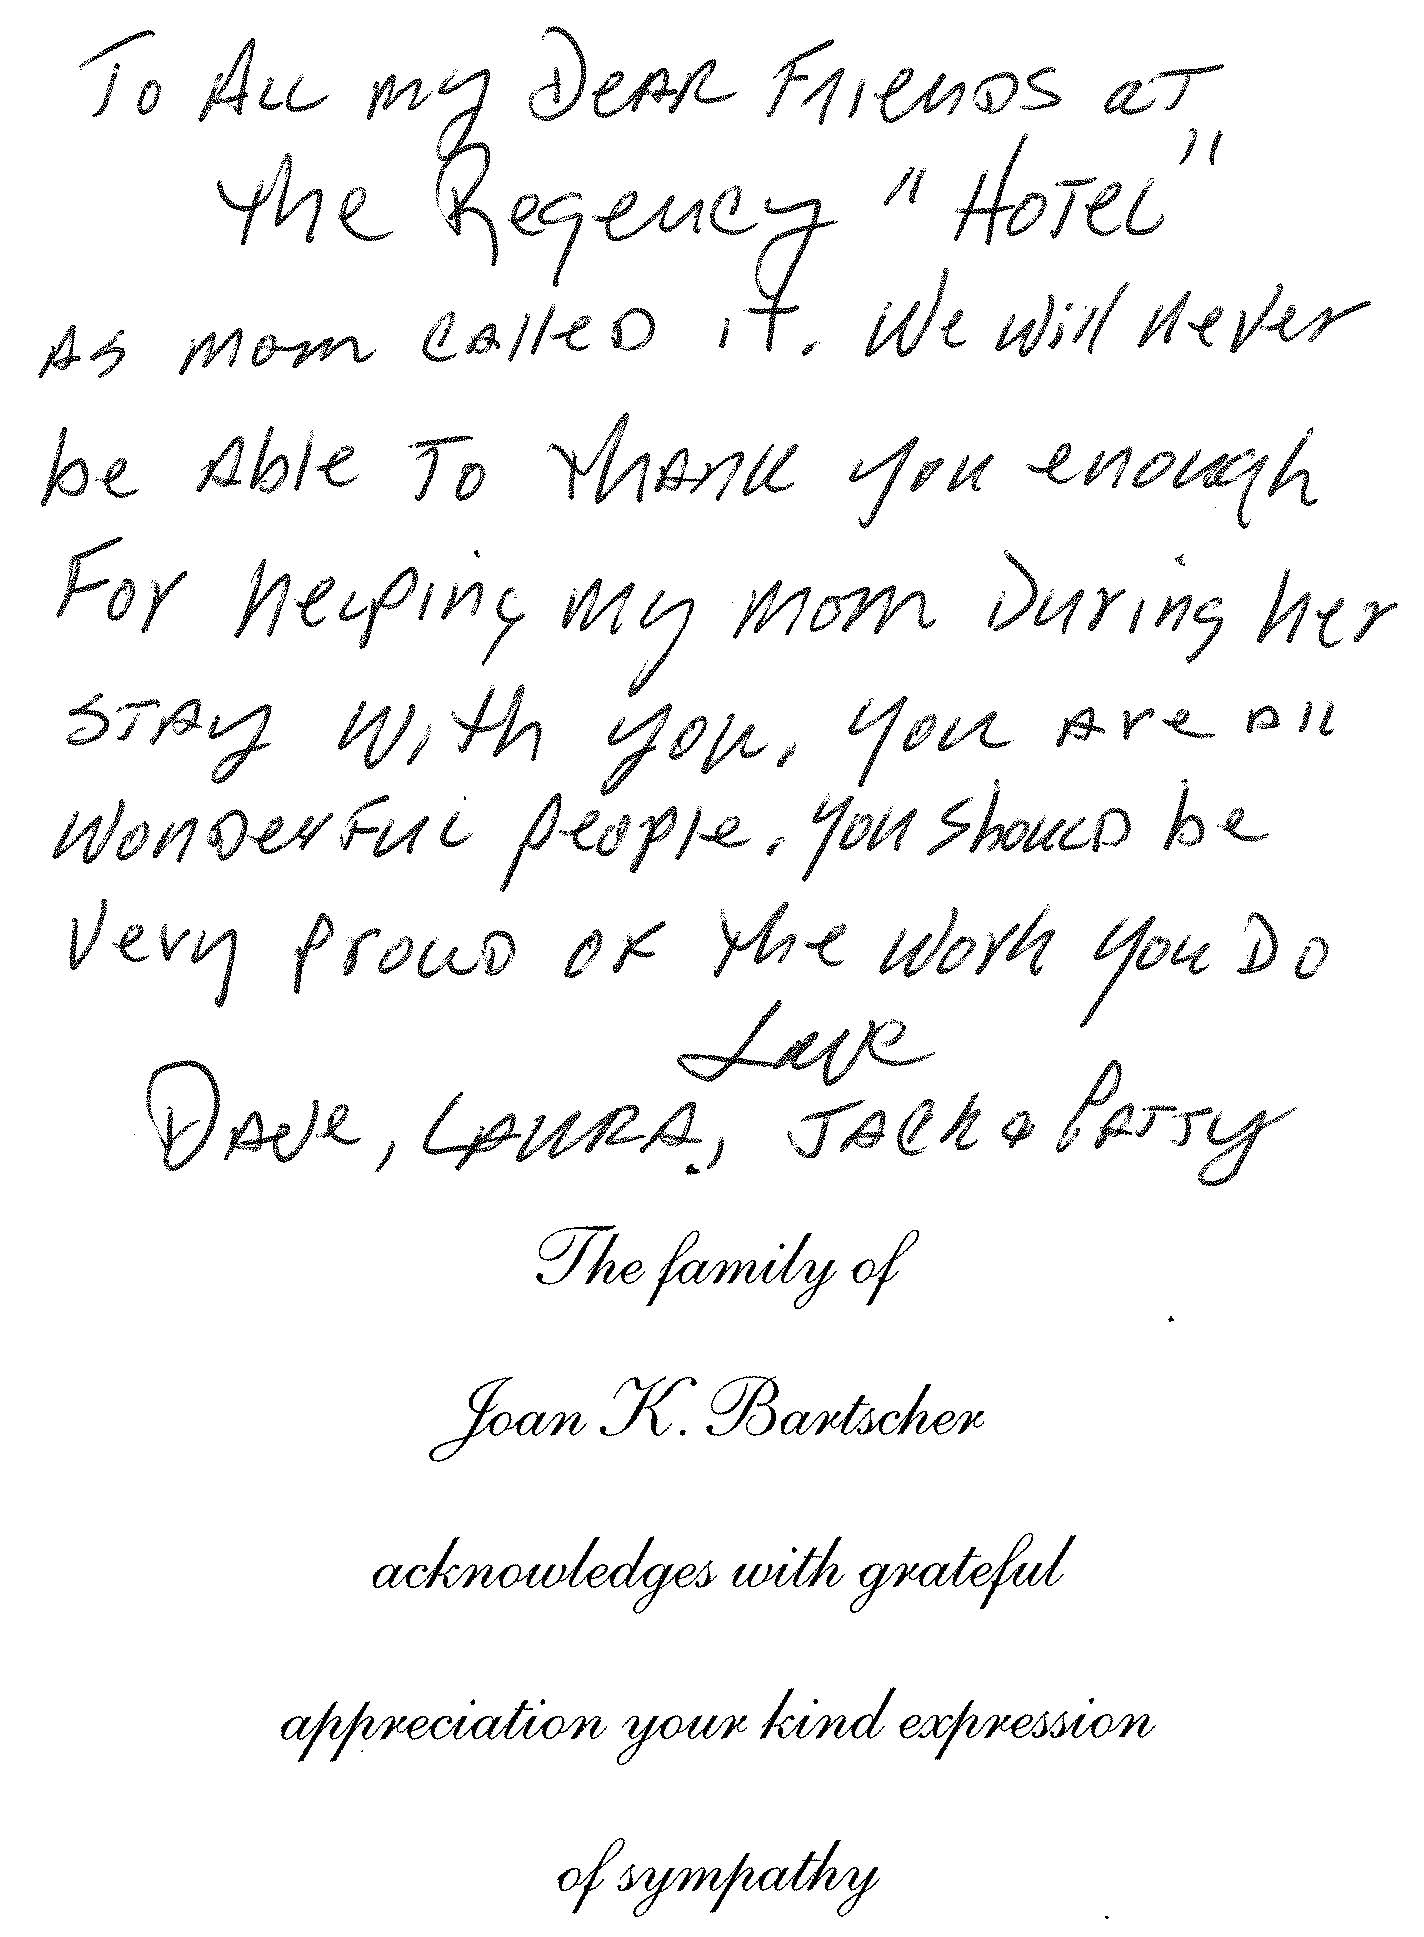 To All my Dear Friends at
the Regency "Hotel"
As mom called it. We will never
be Able To thank you enough
For helping my mom During her
stay with you. You are all
wonderful people. You should be
very proud of the work you Do
Love
Dave, Laura, Jack & Patty
The family of
Joan K. Bartscher
acknowledges with grateful
appreciation your kind expression
of sympathy